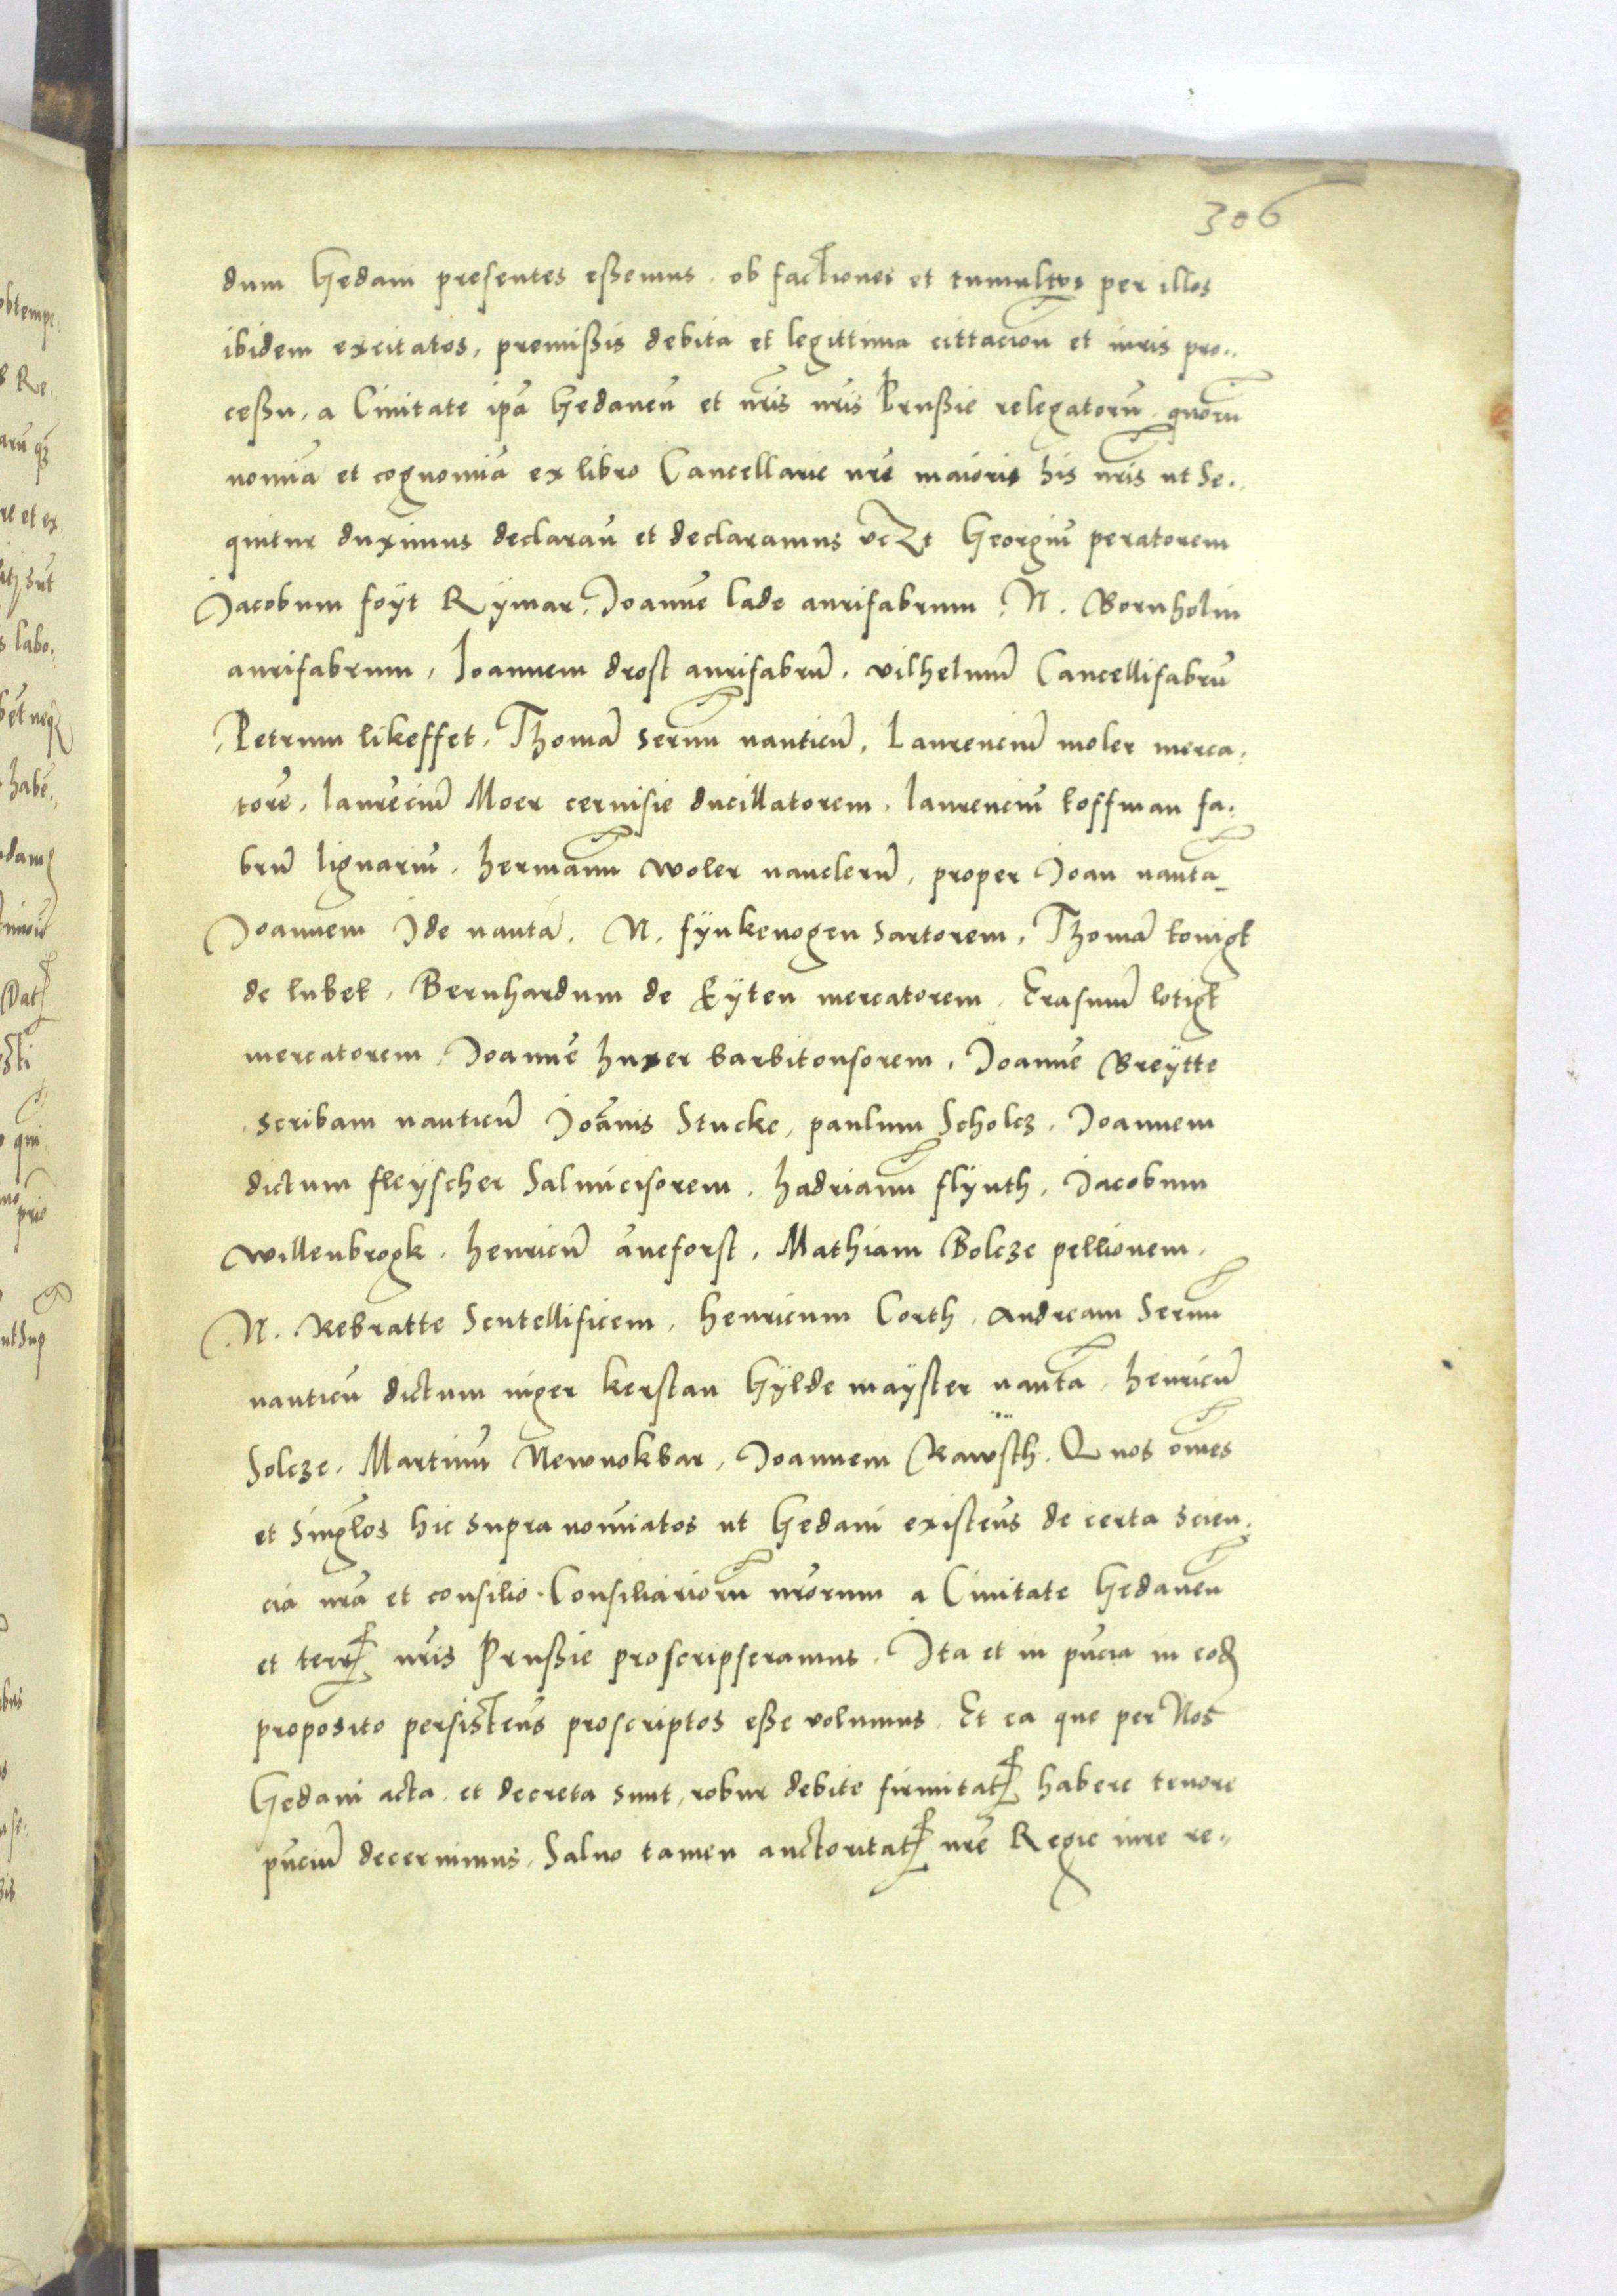 306
dum Gedani presentes eßemus. ob factiones et tumultus per illos
ibidem excitatos, premißis debita et legittima cittacion̄ et iuris pro..
ceßu, a Ciuitate ip̄a Gedanen̄ et n̄ris Prußie relegatorū. quorū
nomīa et cognomīa ex libro Cancellarie nr̄e maioris his nr̄is ut Se..
quitur duximus declaran̄ et declaramus Georgiū peratorem
Jacobum foÿt Rÿmar, Joannē lade aurifabrum, N. Bornholm
aurifabrum, Joannem drost aurifabrū, vilhelmū Cancellifabrū
Petrum likeffet, Thomā seruū nauticū, Laurenciū moler merca.
torē, laurēciū Moer ceruisie ducillatorem, laurenciū koffman fa.
brū lignariū, hermanū woler nauclerū, proper Joan nautā
Joannem Ide nautā, N. fÿnkenogen sartorem, Thomā konigk
de lubek, Bernhardum de Eÿten mercatorem, Erasmū lotigk
mercatorem, Joannē huxer barbitonsorem, Joannē Breÿtte
scribam nauticū Joānis Stucke, paulum Scholcz, Joannem
dictum fleÿscher Salmicisorem, hadrianū flÿnth, Jacobum
willenbrogk, henricū āneforst, Mathiam Bolcze pellionem,
N. Rebratte Scutellificem, henricum Corth, Andream Seruū
nauticū dictum niger kerstan Gÿlde maÿster nautā, henricū
Solcze, Martinū Newnokbar, Joannem Rawsch. Quos om̄es
et singlos hic supra nomīatos ut Gedani existens̄ de certa scien.
cia nr̄a et consilio Consiliariorū nr̄orum a Ciuitate Gedanen̄
et terr̄ nr̄is Prußie proscripseramus, Ita et in pn̄cia in eod
proposito persistens̄ proscriptos eße volumus. Et ea que per Nos
Gedani acta et decreta sunt, robur debite firmitat̄ habere tenore
pn̄ciū decernimus, Saluo tamen auctoritat̄ nr̄e Regie iure re..